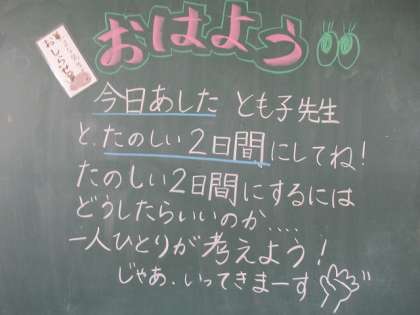 おはよう
おしらせ
今日あした とも子先生
と、たのしい2日間にしてね!
たのしい2日間にするには
どうしたらいいのか....
一人ひとりが考えよう!
じゃあ.いってきまーす